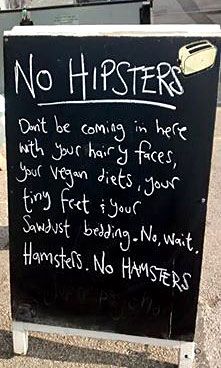 No HIPSTERS
Don't be coming in here
with your hairy faces,
your vegan diets, your
tiny feet & your
Sawdust bedding. No, wait.
Hamsters. No HAMSTERS